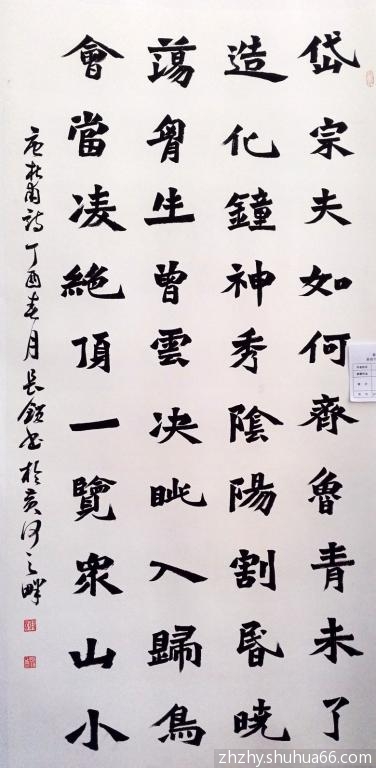 岱宗夫如何齊魯青未了
造化鐘神秀陰陽割昏曉
蕩胷生曾雲决眥入歸鳥
會當凌絕頂一覽衆山小
唐杜甫詩丁酉春月長領書於黃河之畔
zhzhy.shuhua66.com